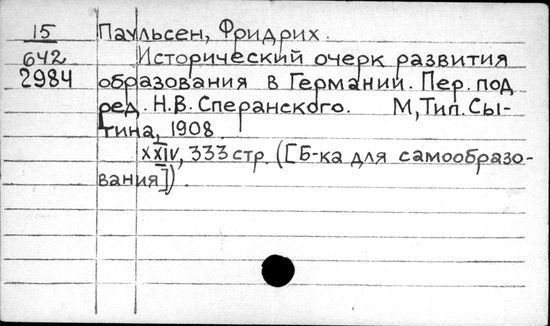 15 Паульсен, Фридрих.
642 Исторический очерк развития
2984 образования в Германии. Пер. под
ред. Н.В. Сперанского. М, Тип. Сы-
тина, 1908.
XXIV, 333 стр. ([Б-ка для самообразо-
вания]).